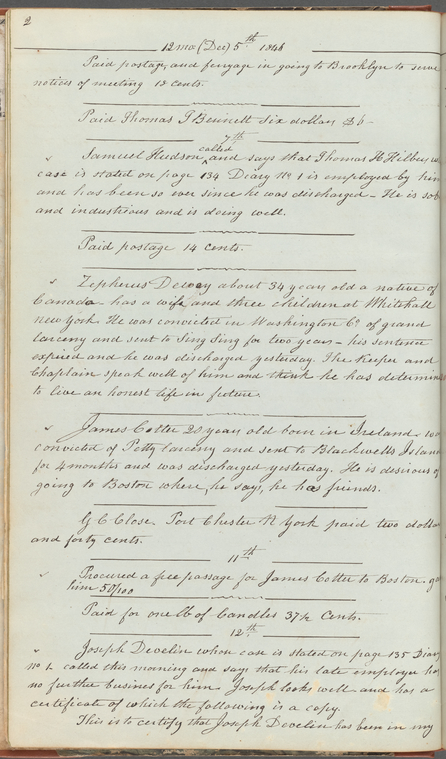 2
12 mo (Dec) 5th 1846
Paid postage, and ferryage in going to Brooklyn to serve
notices of meeting 18 cents.
Paid Thomas G Bennett Six dollars $6-
7th
Samuel Hudson called and says that Thomas H Hilbey w
case is stated on page 134 Diary No 1 is employed by him
and has been so ever since he was discharged - He is sob
and industrious and is doing well.
Paid postage 14 cents.
Zepherus Dewey about 34 years old a native of
Canada has a wife and three children at Whitehall
new york. He was convicted in Washington Co of grand
larceny and sent to Sing Sing for two years - his sentence
expired and he was discharged yesterday. The Keeper and
Chaplain speak well of him and think he has determin
to live an honest life in future.
James Cotter 20 years old born in Ireland. wa
convicted of Petty larceny and sent to Blackwells Island
for 4 months and was discharged yesterday. He is desirous of
going to Boston where, he says, he has friends.
G C Close. Port Chester N York paid two dollar
and forty cents.
11th
Procured a free passage for James Cotter to Boston. ga
him 50/100
Paid for one lb of Candles 37½ Cents.
12th
Joseph Develin whose case is stated on page 135 Diary
No 1. called this morning and says that his late employer has
no further busines for him. Joseph looks well and has a
certificate of which the following is a copy.
This is to certify that Joseph Develin has been in my